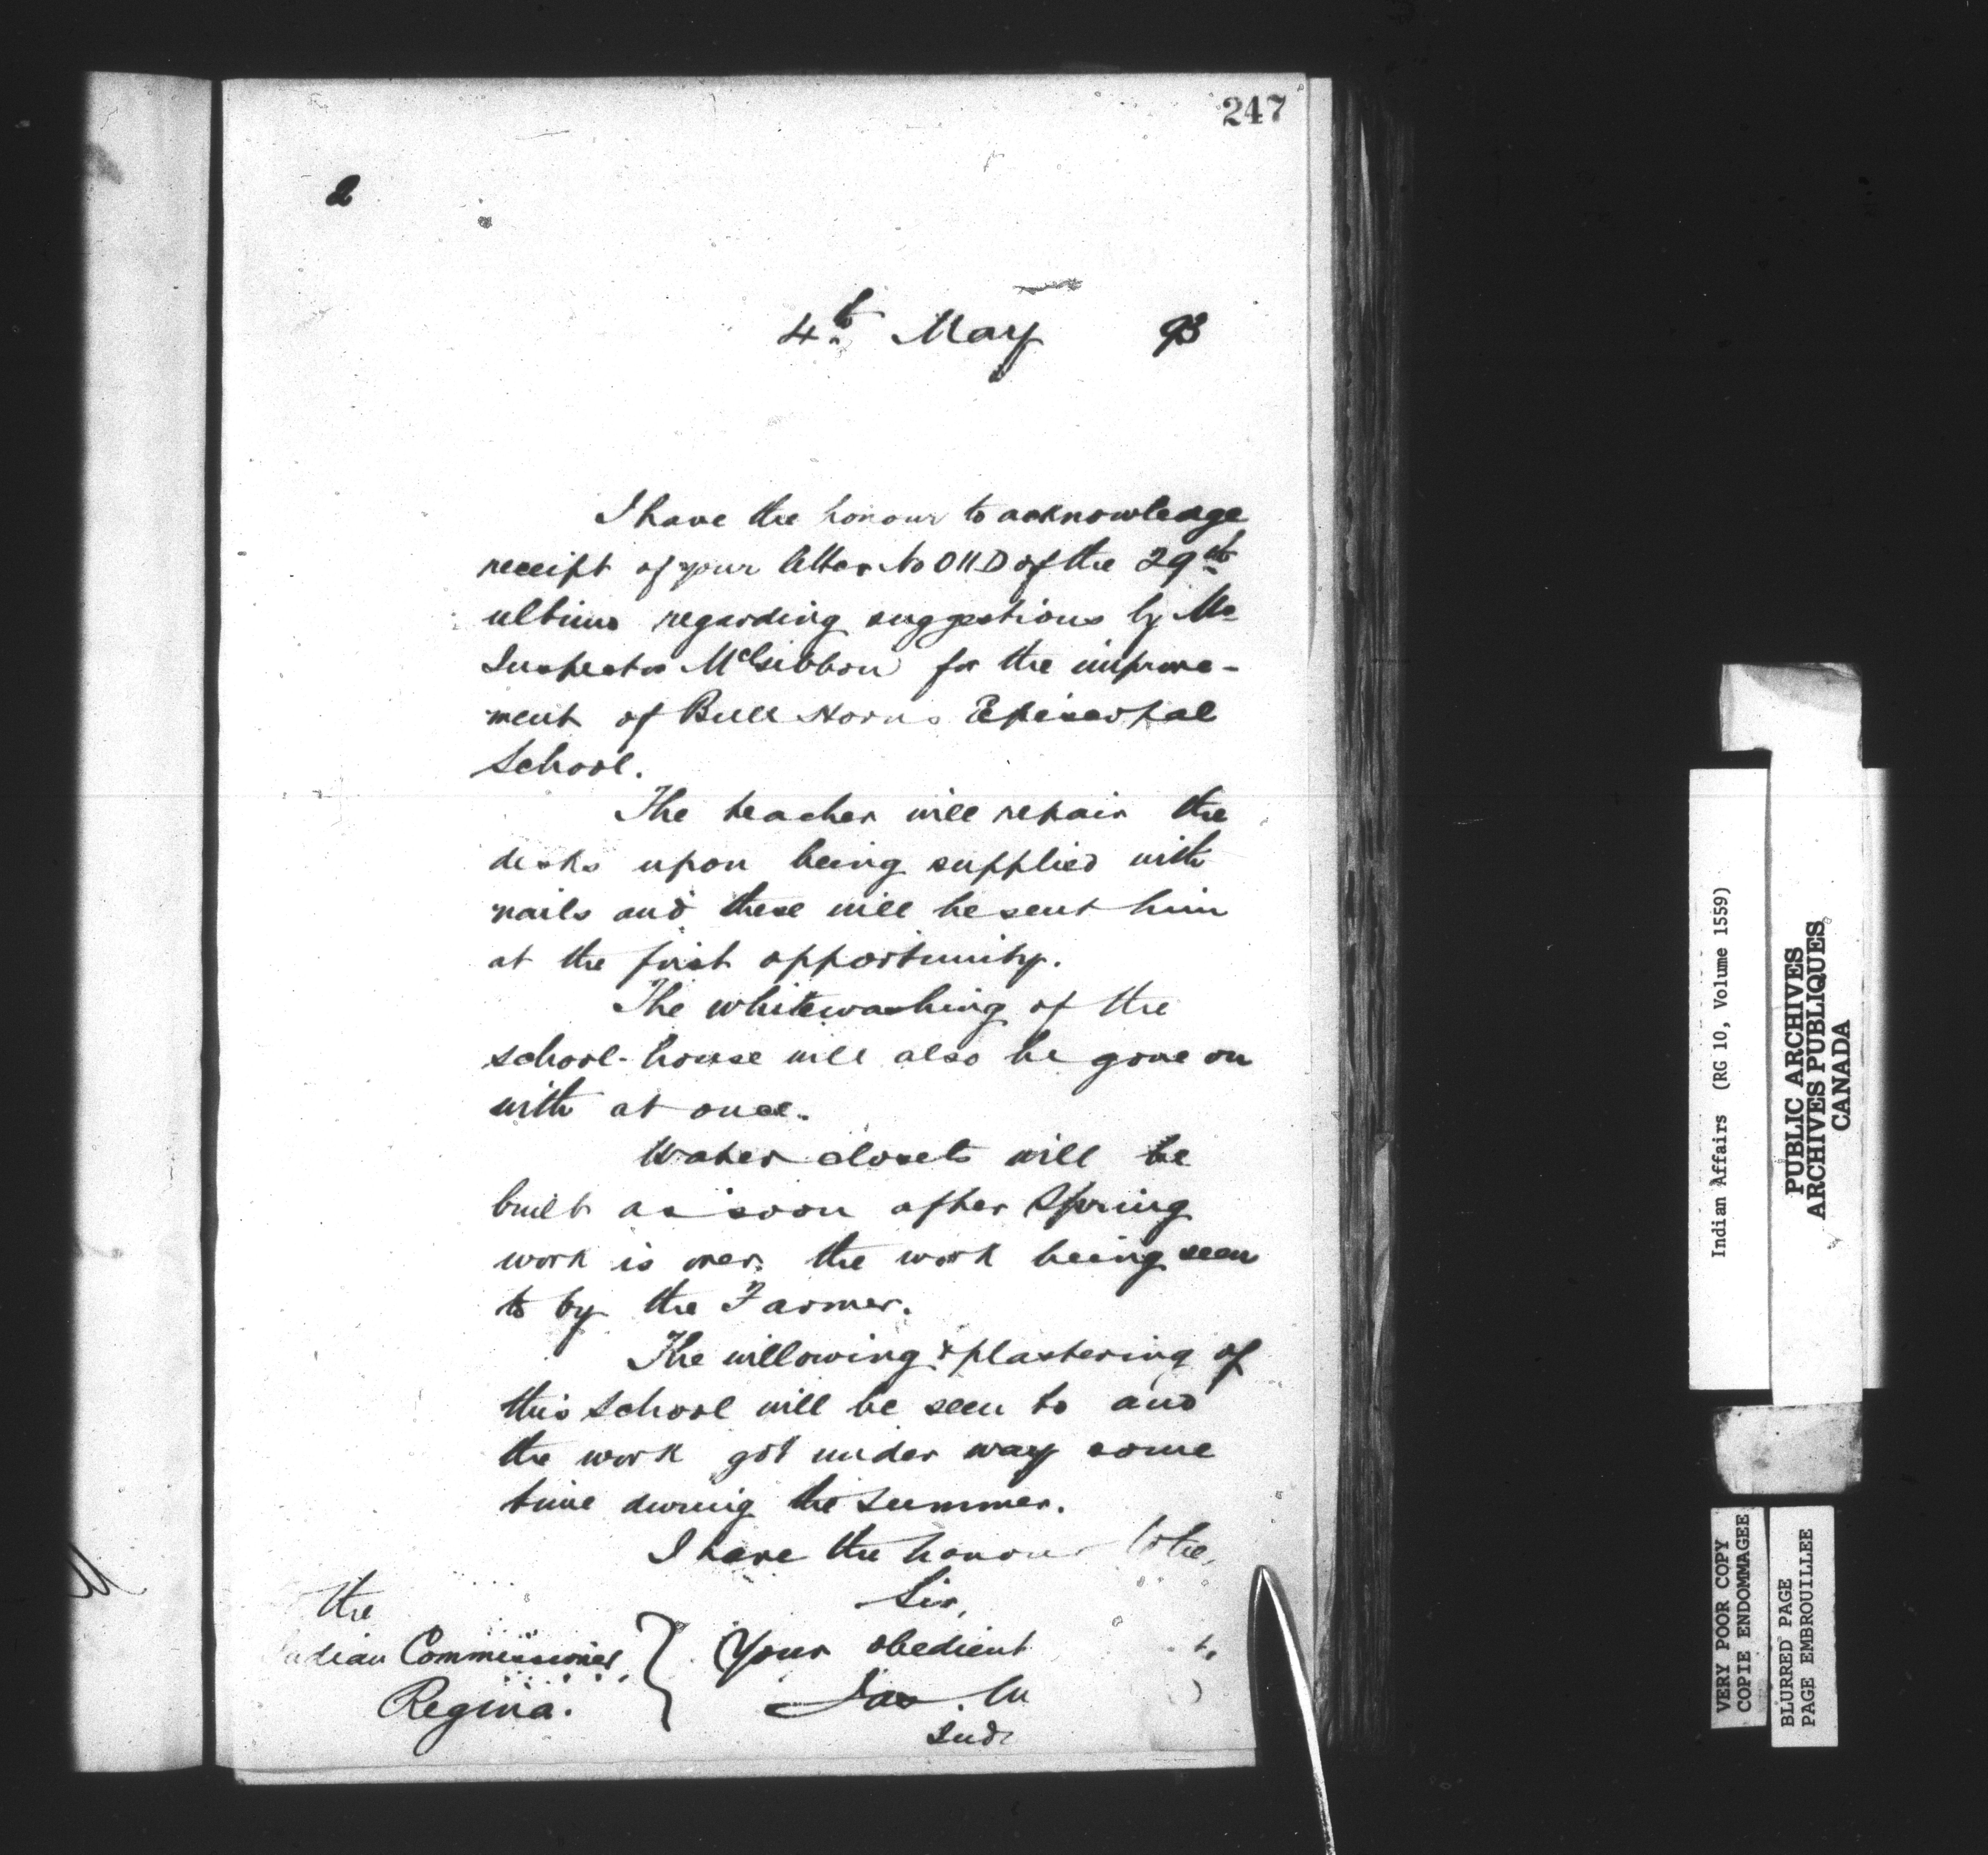 247
2
4th May 93
I have the honour to acknowledge
receipt of your letter No 011D of the 29th
ultimo regarding suggestions by Mr
Inspector McGibbon for the improve-
ment of Bull Horns Episcopal
School.
The teacher will repair the
desks upon being supplied with
nails and these will be sent him
at the first opportunity.
The whitewashing of the
school-house will also be gone on
with at once.
Water closets will be
built as soon after Spring
work is over, the work being seen
to by the Farmer.
The willowing & plastering of
this School will be seen to and
the work got under way some
time during the Summer.
I have the honour to be,
Sir,
Your obedient
Jas.
Ind
the
Indian Commissioner,
Regina.
Indian Affairs (RG 10, Volume 1559)
PUBLIC ARCHIVES
ARCHIVES PUBLIQUES
CANADA
VERY POOR COPY
COPIE ENDOMMAGEE
BLURRED PAGE
PAGE EMBROUILLEE